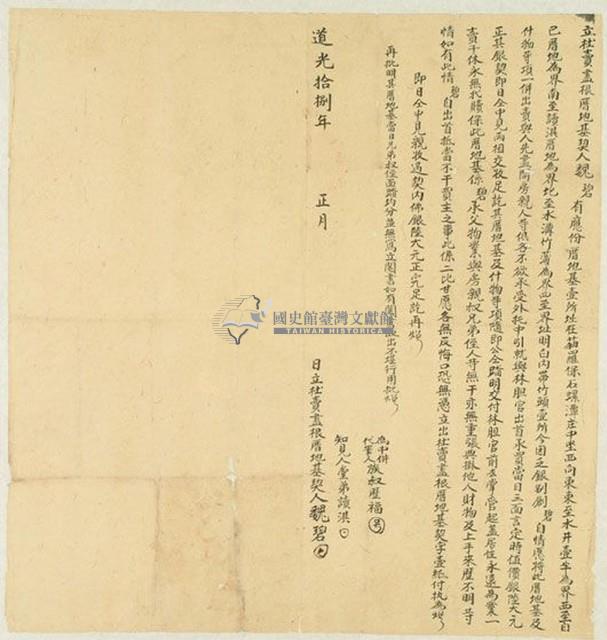 立杜賣盡根厝地基契人魏碧有應份厝地基壹所坐在貓羅保石螺潭庄中坐西向東東至水井壹半為界西至自
己厝地為界南至讀淇厝地為界北至水溝竹蒲為界四至界址明白內帶竹頭壹所今因乏銀別創碧自情應將此厝地基及
什物等項一併出賣與人先盡問房親人等俱各不欲承受外托中引就與林胆官出首承買當日三面言定時值價銀陸大元
正其銀契即日仝中見兩相交收足訖其厝地基及什物等項隨即公仝踏明交付林胆官前去掌管起蓋居住永遠為業一
賣千休永無找贖保此厝地基係碧承父物業與房親叔兄弟侄人等無干亦無重張典掛他人財物及上手來歷不明等
情如有此情碧自出首抵當不干買主之事此係二比甘愿各無反悔口恐無憑立出杜賣盡根厝地基契字壹紙付執為炤
即日仝中見親收過契內佛銀陸大元正完足訖再炤
再批明其厝地基當日兄弟叔侄面踏均分並無為立鬮書如有鬮書取出不堪行用批炤
為中併代筆人族叔歷福
知見人堂弟讀淇
道光拾捌年 正月 日立杜賣盡根厝地基契人魏碧
國史館臺灣文獻館
TAIWAN HISTORICA